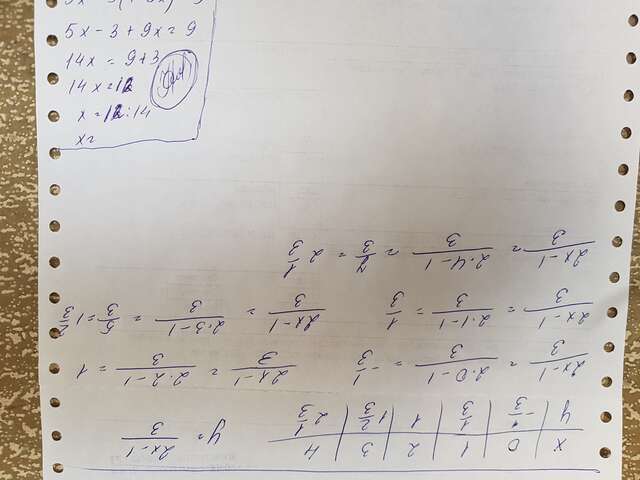 5x - 3 + 9x = 9
14x = 9+3
14x = 12
x = 12:14
x=
x | 0 | 1 | 2 | 3 | 4
y | -1/3 | 1/3 | 1 | 1 2/3 | 2 1/3
y = (2x-1)/3
(2x-1)/3 = (2·0-1)/3 = -1/3
(2x-1)/3 = (2·2-1)/3 = 1
(2x-1)/3 = (2·1-1)/3 = 1/3
(2x-1)/3 = (2·3-1)/3 = 5/3 = 1 2/3
(2x-1)/3 = (2·4-1)/3 = 7/3 = 2 1/3